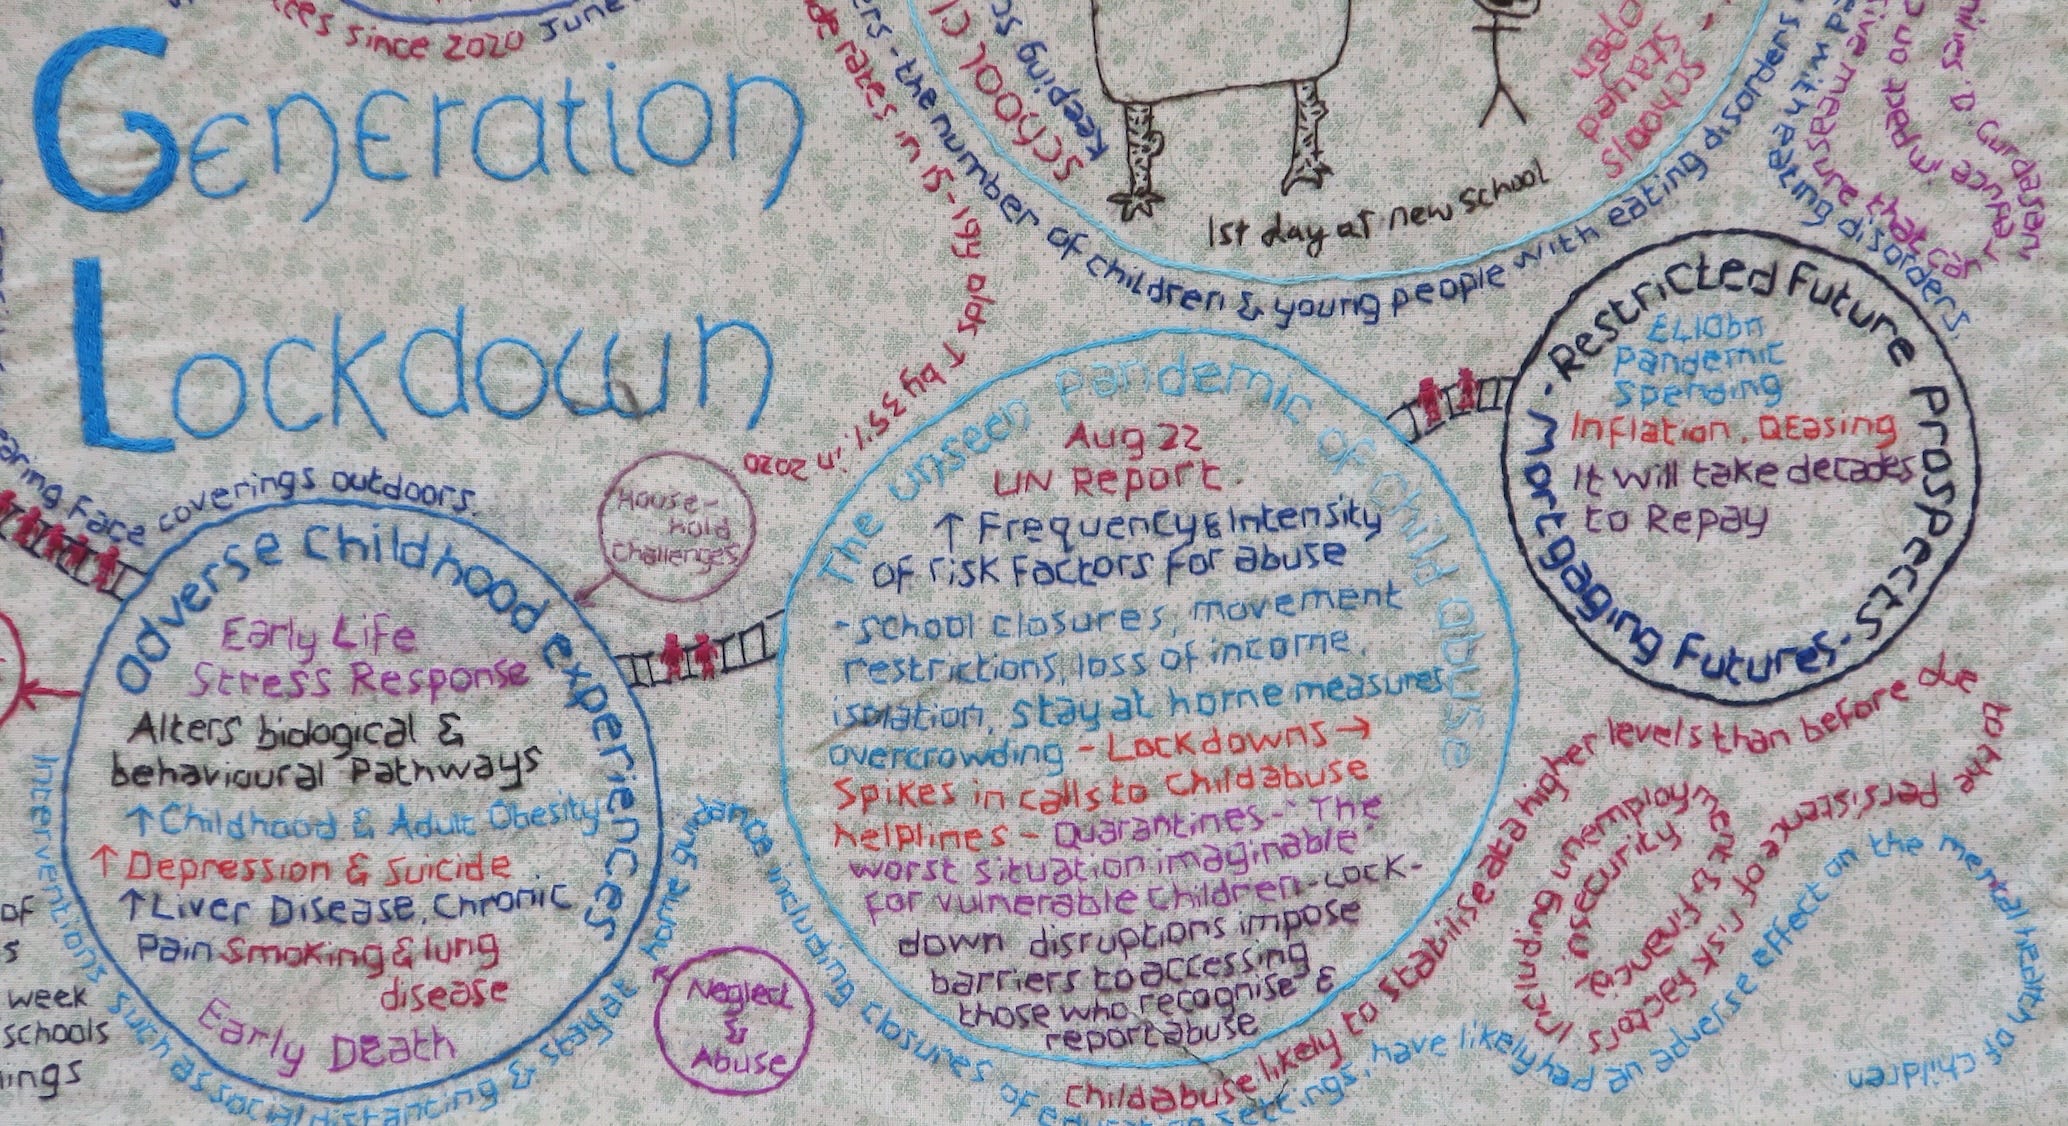 Generation
Lockdown
since 2020 June
in 15-19y olds ↑ by 35% in 2020
- the number of children & young people with eating disorders
school
keeping
schools
stayed
open
1st day at new school
D. Gurdasani
impact on
measure that can
eating disorders.
face coverings outdoors.
House-
hold
challenges
Adverse Childhood experiences
Early Life
Stress Response
Alters biological &
behavioural Pathways
↑Childhood & Adult Obesity
↑Depression & Suicide
↑Liver Disease, Chronic
Pain Smoking & lung
disease
Early Death
Neglect
&
Abuse
The unseen pandemic of child abuse
Aug 22
UN Report.
↑ Frequency & Intensity
of risk factors for abuse
-school closures, movement
restrictions, loss of income,
isolation, stay at home measures,
overcrowding - Lockdowns →
Spikes in calls to Childabuse
helplines - Quarantines-'The
worst situation imaginable'
for vulnerable Children-Lock-
down disruptions impose
barriers to accessing
those who recognise &
report abuse
Restricted Future Prospects - Mortgaging Futures -
£410bn
Pandemic
Spending
Inflation, QEasing
It will take decades
to Repay
of
s
week
schools
ings
Interventions such as social distancing & stay at home guidance including closures of education settings, have likely had an adverse effect on the mental health of children
Childabuse likely to stabilise at a higher levels than before due to the persistence of risk factors including unemployment & financial insecurity